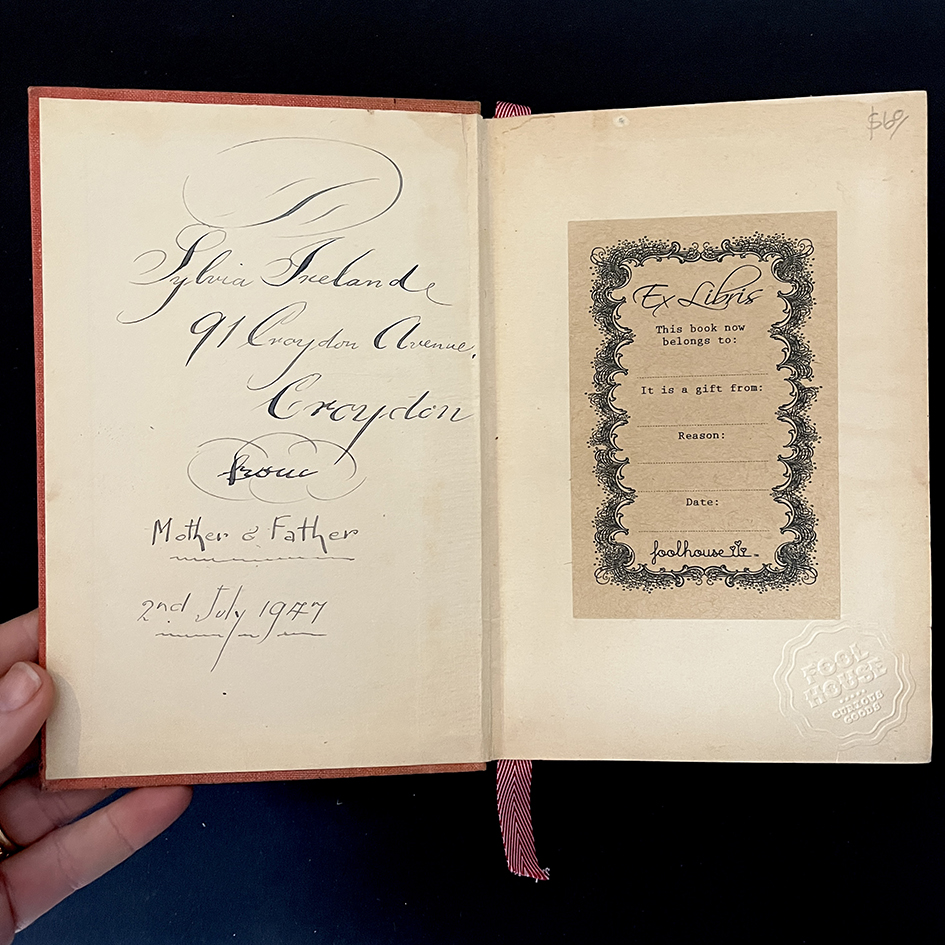 Sylvia Ireland
91 Croydon Avenue,
Croydon
from
Mother & Father
2nd July 1947
Ex Libris
This book now
belongs to:
It is a gift from:
Reason:
Date:
foolhouse
FOOL
HOUSE
CURIOUS
GOODS